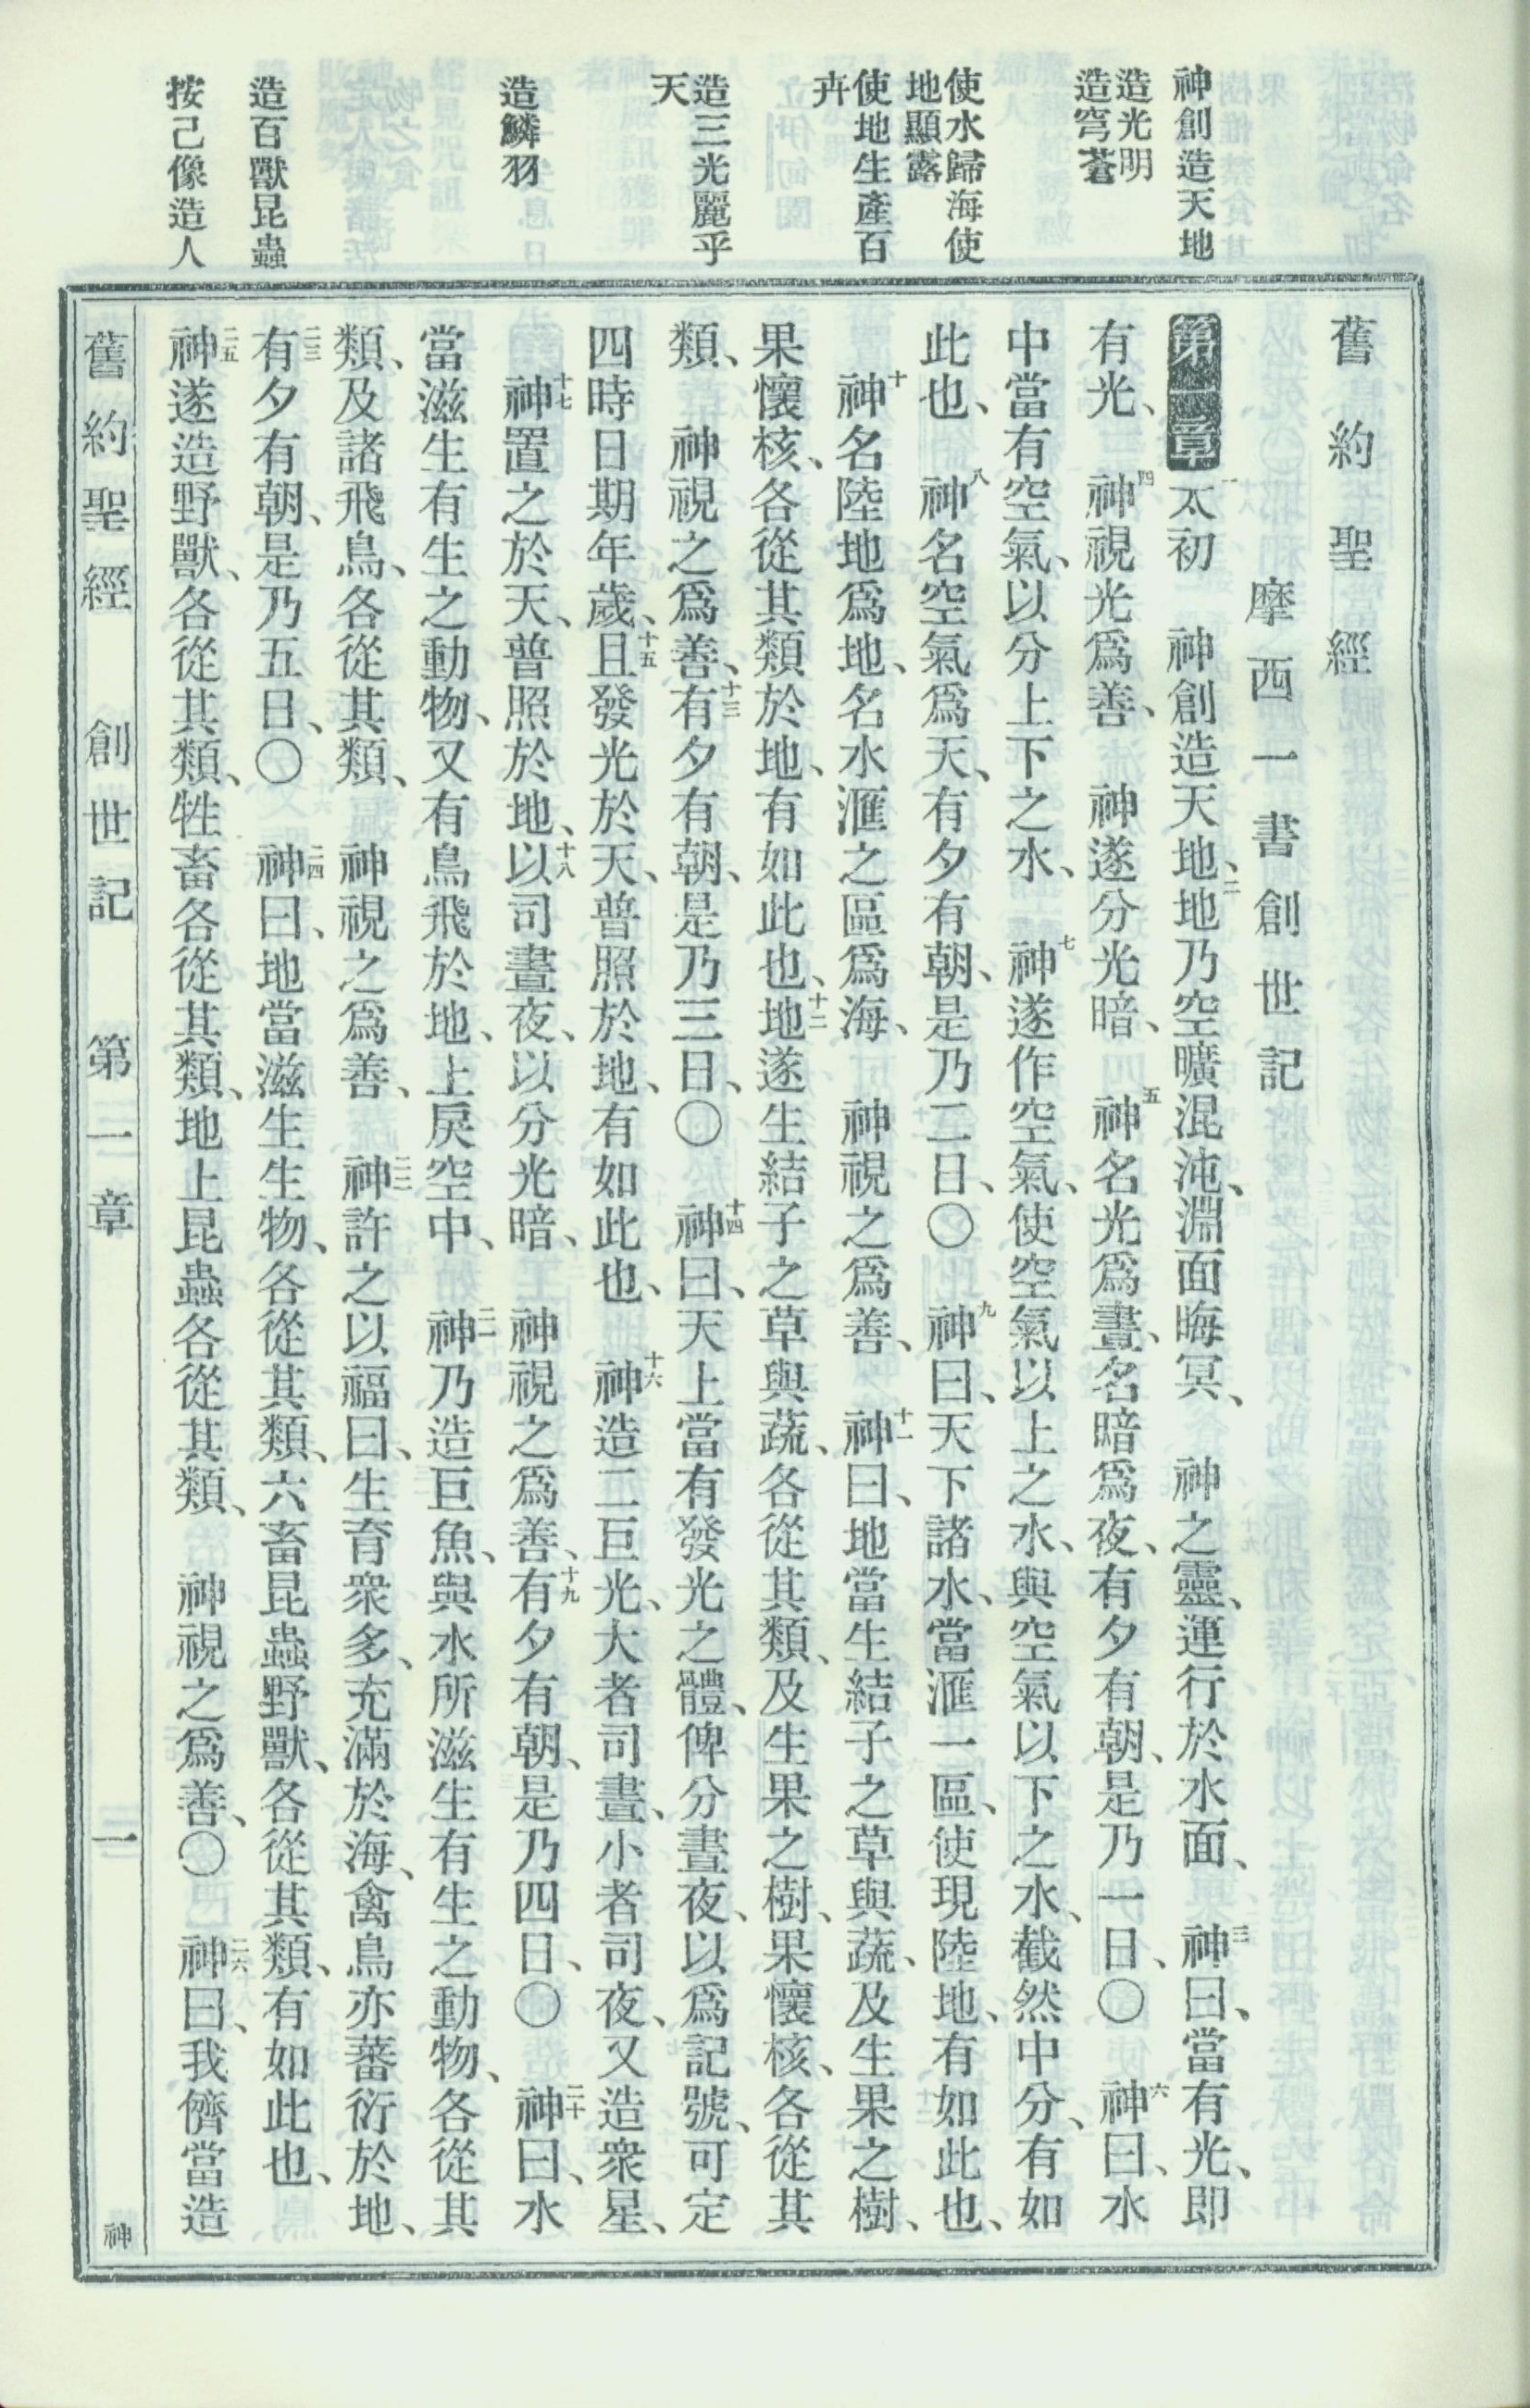 神創造天地
造光明
造穹蒼
使水歸海使
地顯露
使地生產百
卉
造三光麗乎
天
造鱗羽
造百獸昆蟲
按己像造人
舊約聖經
摩西一書創世記
第一章 一太初 神創造天地、二地乃空曠混沌、淵面晦冥、 神之靈、運行於水面、 三神曰、當有光、即
有光、 四神視光爲善、 神遂分光暗、 五神名光爲晝、名暗爲夜、有夕有朝、是乃一日、〇 六神曰、水
中當有空氣、以分上下之水、 七神遂作空氣、使空氣以上之水、與空氣以下之水、截然中分、有如
此也、 八神名空氣爲天、有夕有朝、是乃二日、〇 九神曰、天下諸水、當滙一區、使現陸地、有如此也、
十神名陸地爲地、名水滙之區爲海、 神視之爲善、 十一神曰、地當生結子之草與蔬、及生果之樹、
果懷核、各從其類於地、有如此也、十二地遂生結子之草與蔬、各從其類、及生果之樹、果懷核、各從其
類、 神視之爲善、十三有夕有朝、是乃三日、〇 十四神曰、天上當有發光之體、俾分晝夜、以爲記號、可定
四時日期年歲、十五且發光於天、普照於地、有如此也、 十六神造二巨光、大者司晝、小者司夜、又造衆星、
十七神置之於天、普照於地、十八以司晝夜、以分光暗、 神視之爲善、十九有夕有朝、是乃四日、〇 二十神曰、水
當滋生有生之動物、又有鳥飛於地、上戾空中、 二一神乃造巨魚、與水所滋生有生之動物、各從其
類、及諸飛鳥、各從其類、 神視之爲善、 二二神許之以福曰、生育衆多、充滿於海、禽鳥亦蕃衍於地、
二三有夕有朝、是乃五日、〇 二四神曰、地當滋生生物、各從其類、六畜昆蟲野獸、各從其類、有如此也、
二五神遂造野獸、各從其類、牲畜各從其類、地上昆蟲各從其類、 神視之爲善、〇 二六神曰、我儕當造
舊約聖經 創世記 第一章 一 神